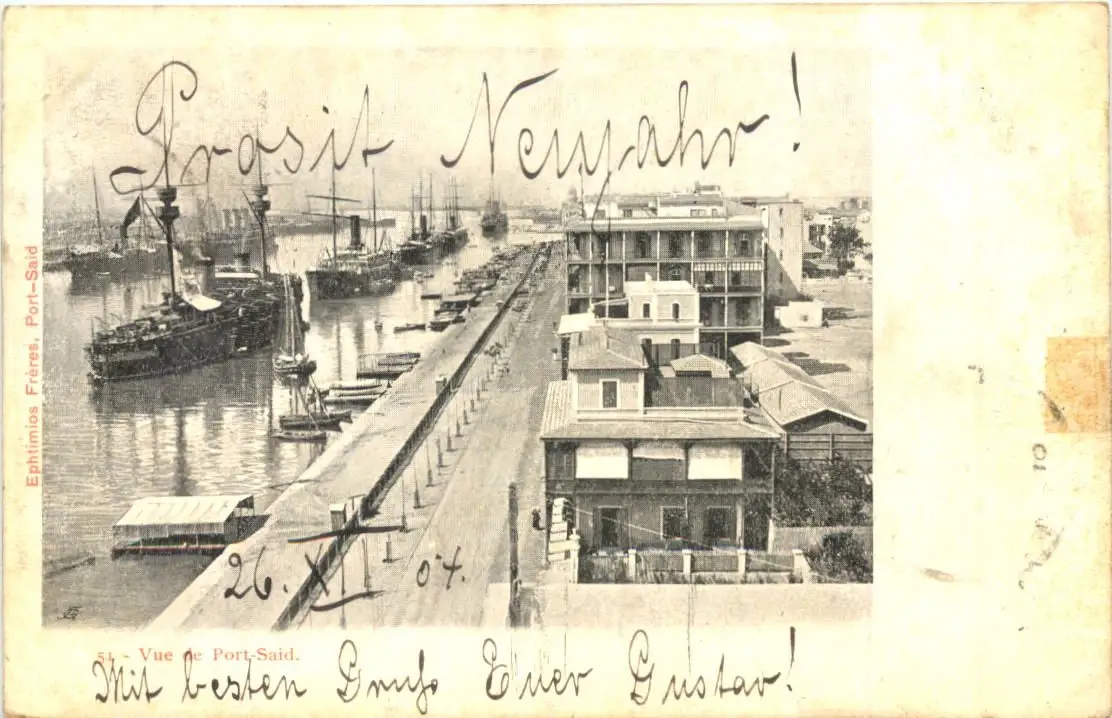 Prosit Neujahr!
Ephtimios Frères, Port-Said
26. XI 04.
51 - Vue de Port-Said.
Mit besten Gruß Euer Gustav!